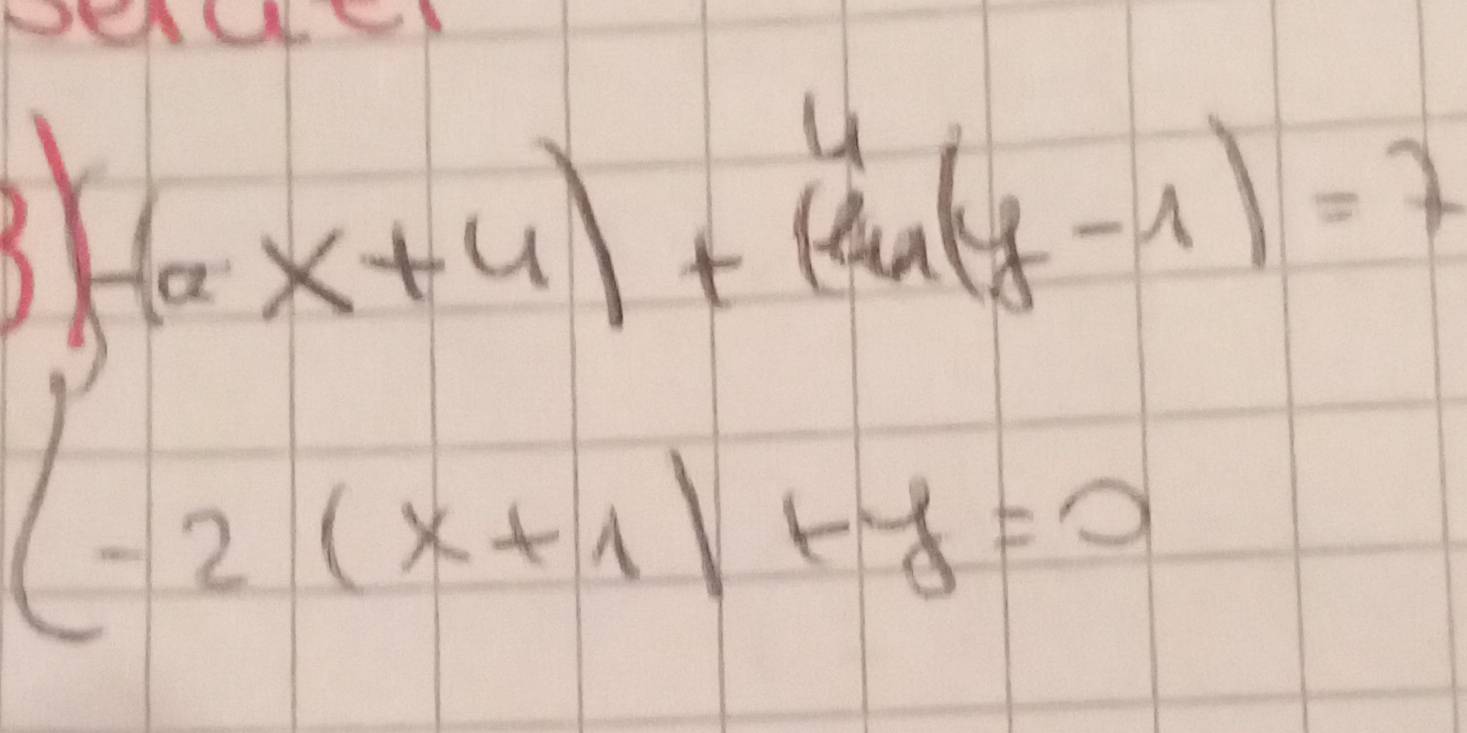 3) -(x+4) + 4(y-1) = 7
-2(x+1)+y=0